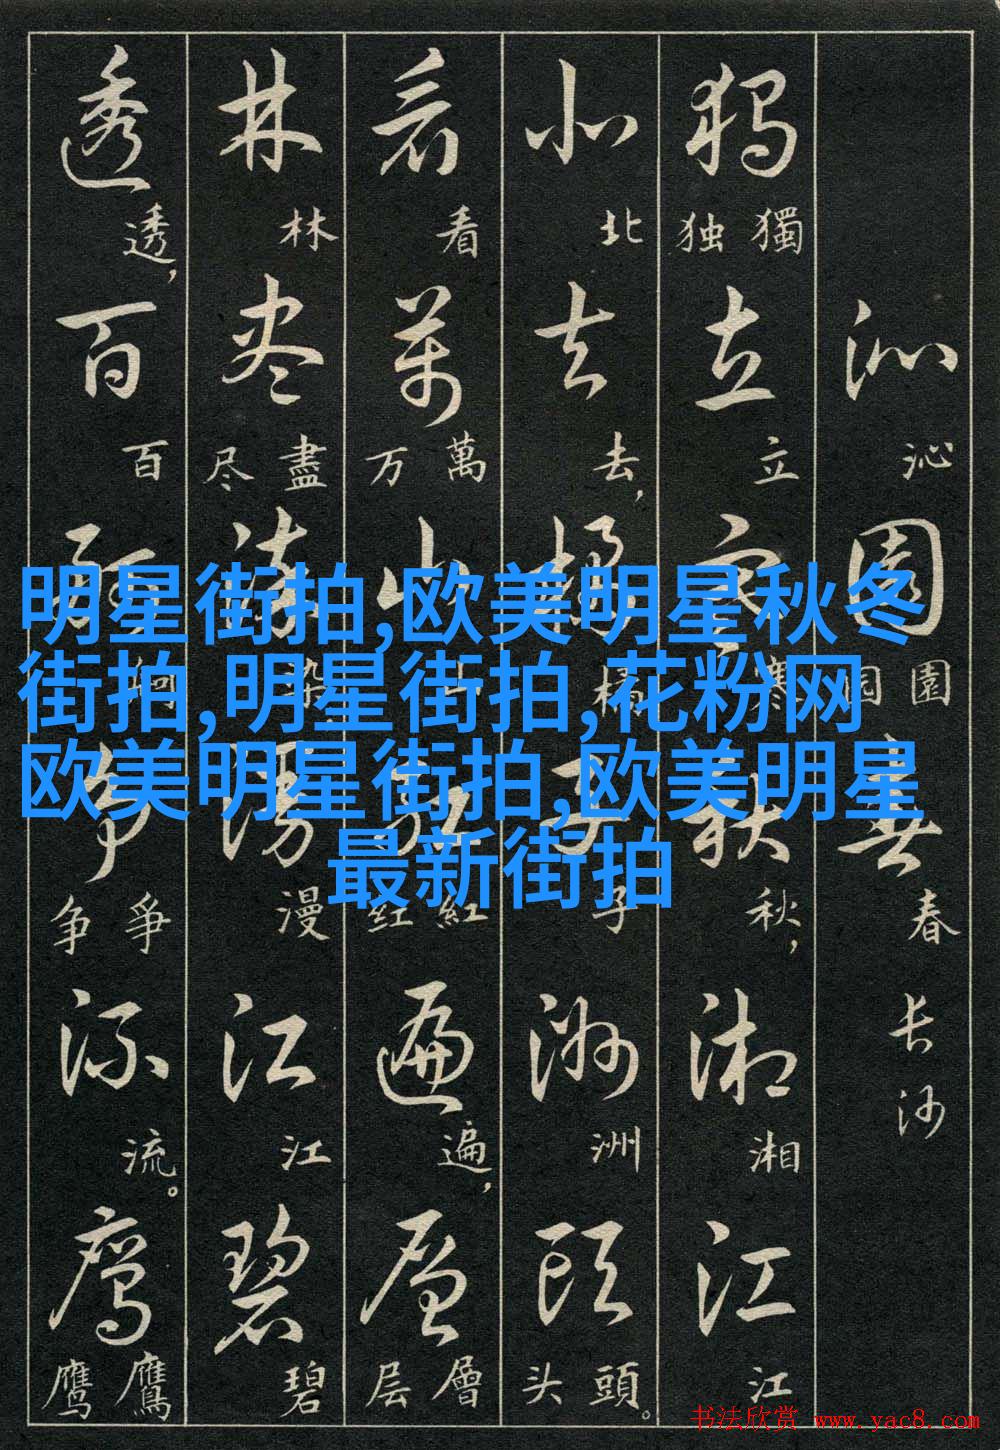 沁 沁 園 园 園 春 春 长沙
独 独 獨 立 立 寒 寒 秋 秋， 湘 湘 江 江
北 北 去 去， 橘 橘 子 子 洲 洲 头 头 頭。
看 看 萬 万 萬 山 山 红 红 紅 遍 遍， 层 层 層
林 林 尽 尽 盡 染 染 漫 漫 江 江 碧 碧
透 透， 百 百 舸 舸 争 争 爭 流 流。 鹰 鹰 鷹
明星街拍,欧美明星秋冬
街拍,明星街拍,花粉网
欧美明星街拍,欧美明星
最新街拍
书法欣赏 www.yac8.com